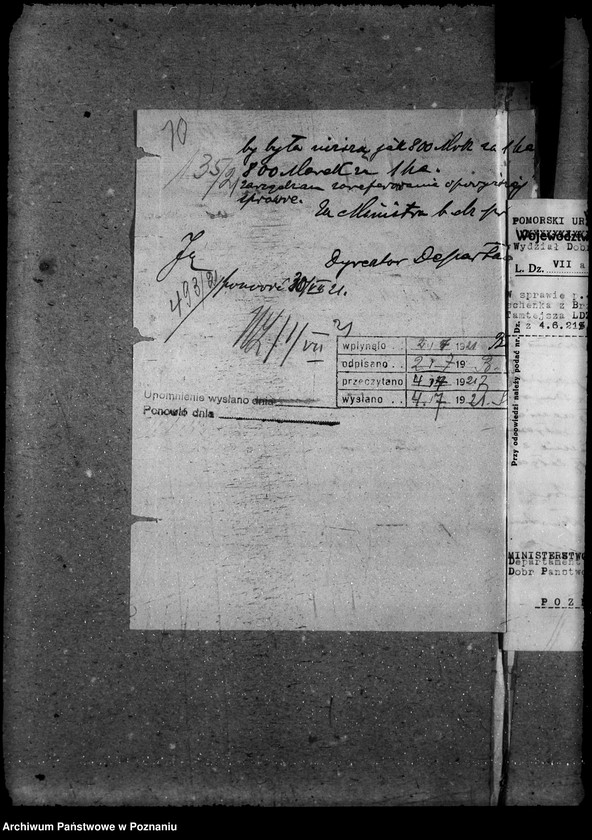 10
by była niższą jak 800 Mrk za 1 ha
800 Marek za 1 ha.
zarządzam
sprawę.
Za Ministra b. dz. pr
Dyrektor Departa
493/21
ponowić 30/VII 21.
11/VII 21
wpłynęło . . 2. 7 1921
odpisano . . 2. 7 19
przeczytano 4. 7 1921
wysłano . . 4. 7 1921
Upomnienie wysłano dnia
Ponowić dnia
POMORSKI UR
Województw
Wydział Dob
L. Dz. VII a
W sprawie
chenka z Br
Tamtejsza LDZ
z 4.6.21
Przy odpowiedzi należy podać nr. Dz.
MINISTERSTWO
Departament
Dobr Państwo
P O Z
Archiwum Państwowe w Poznaniu